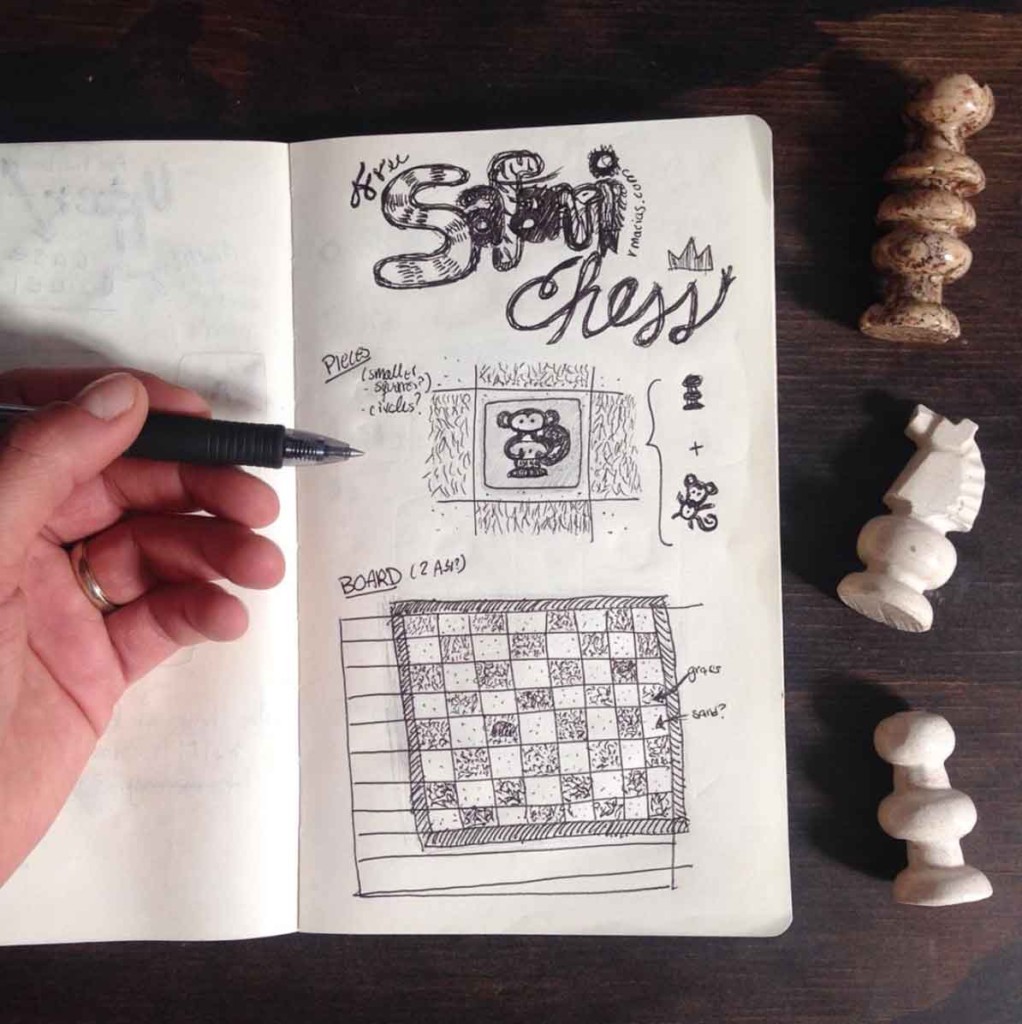 free
Safari
rmacias.com
chess
PIECES
(smaller
squares?)
- circles?
+
BOARD (2 A3?)
grass
sand?